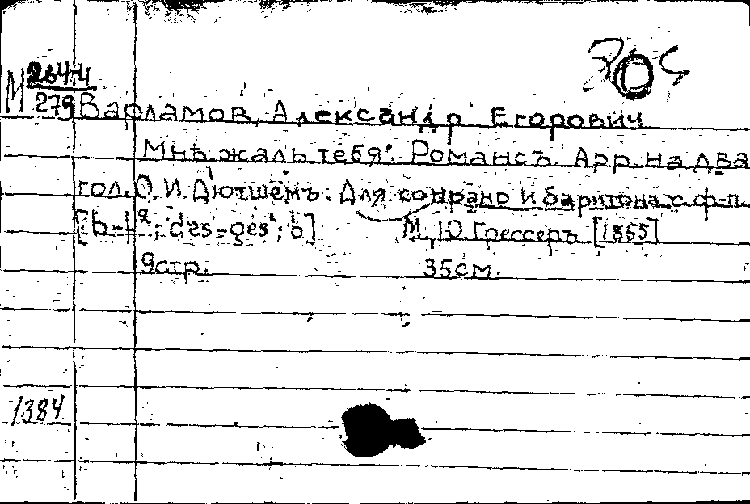 М 264-4
279 Варламов, Александр Егорович
"Мнѣ жаль тебя". Романсъ. Арр. на два
гол. О. И. Дютшемъ. Для сопрано и баритона с ф-п.
М., Ю. Грессеръ [1855]
9 стр. 35 см.
1384